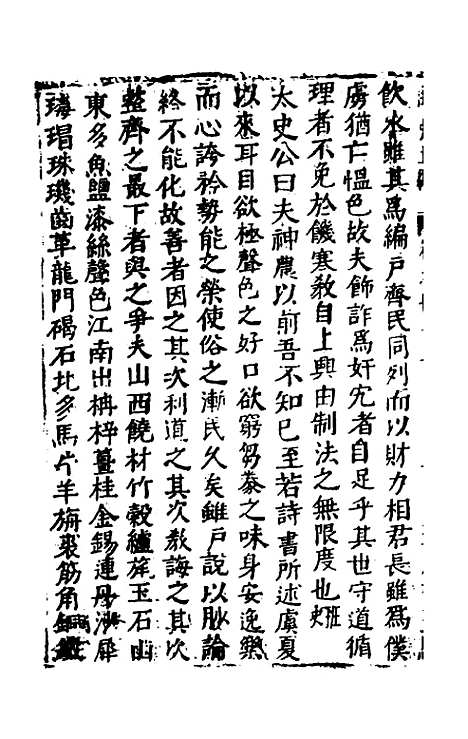 飲水雖其爲編戸齊民同列而以財力相君長雖爲僕
虜猶亡愠色故夫飾詐爲奸宄者自足乎其世守道循
理者不免於饑寒敎自上興由制法之無限度也班史
太史公曰夫神農以前吾不知已至若詩書所述虞夏
以來耳目欲極聲色之好口欲窮芻豢之味身安逸樂
而心誇矜勢能之榮使俗之漸民久矣雖戸說以眇論
終不能化故善者因之其次利道之其次敎誨之其次
整齊之最下者與之爭夫山西饒材竹榖纑旄玉石山
東多魚鹽漆絲聲色江南出枏梓薑桂金錫連丹沙犀
瑇瑁珠璣齒革龍門碣石北多馬牛羊旃裘筋角銅鐵